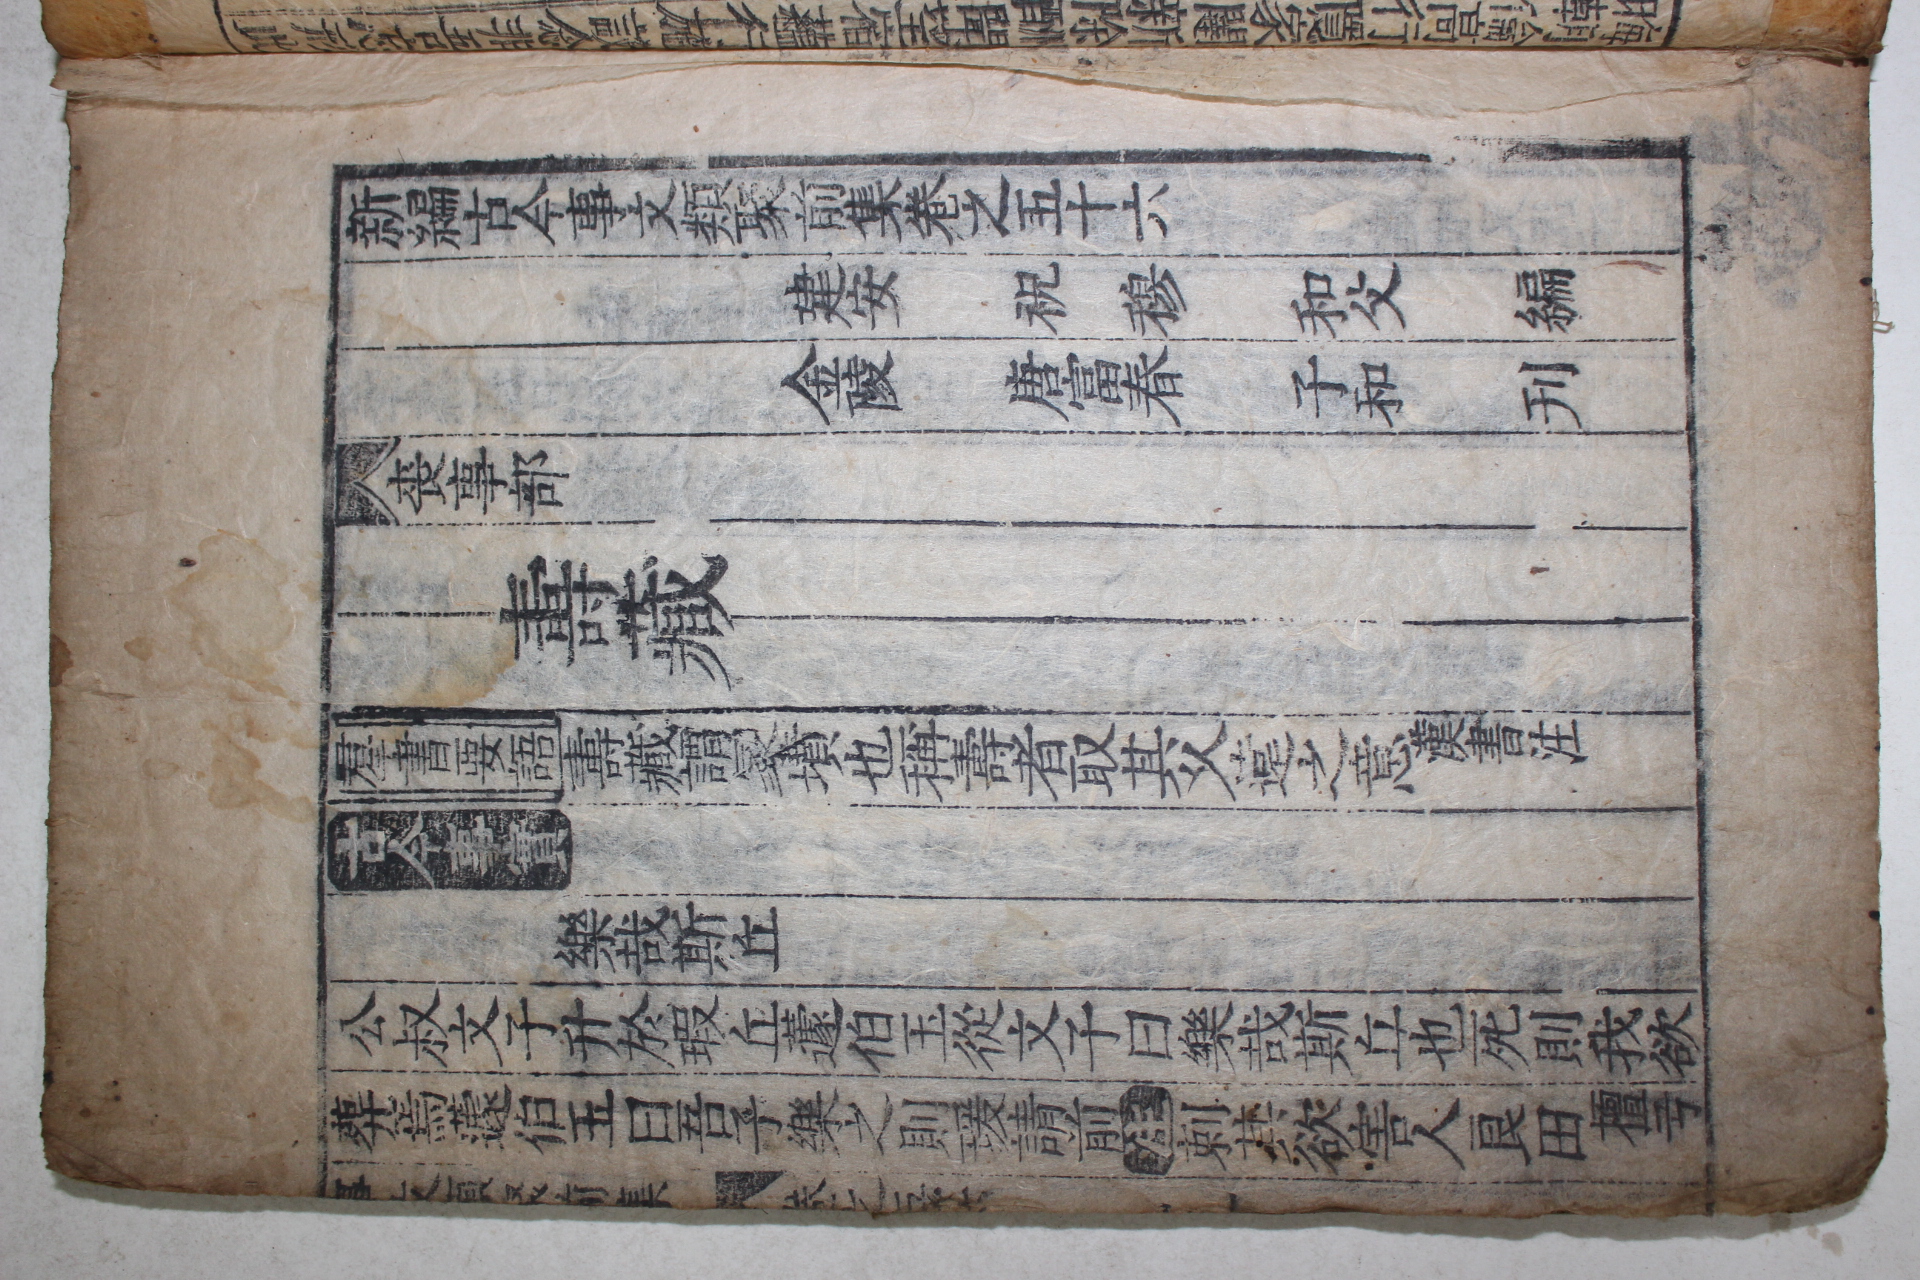 新編古今事文類聚前集卷之五十六
建安 祝穆 和父 編
金陵 唐富春 子和 刊
喪事部
壽藏
羣書要語 壽藏謂冢壙也稱壽者取其久遠之意漢書注
古今事實
樂哉斯丘
公叔文子升於瑕丘蘧伯玉從文子曰樂哉斯丘也死則我欲
葬焉蘧伯玉曰吾子樂之則瑗請前 刺其欲害人良田檀弓